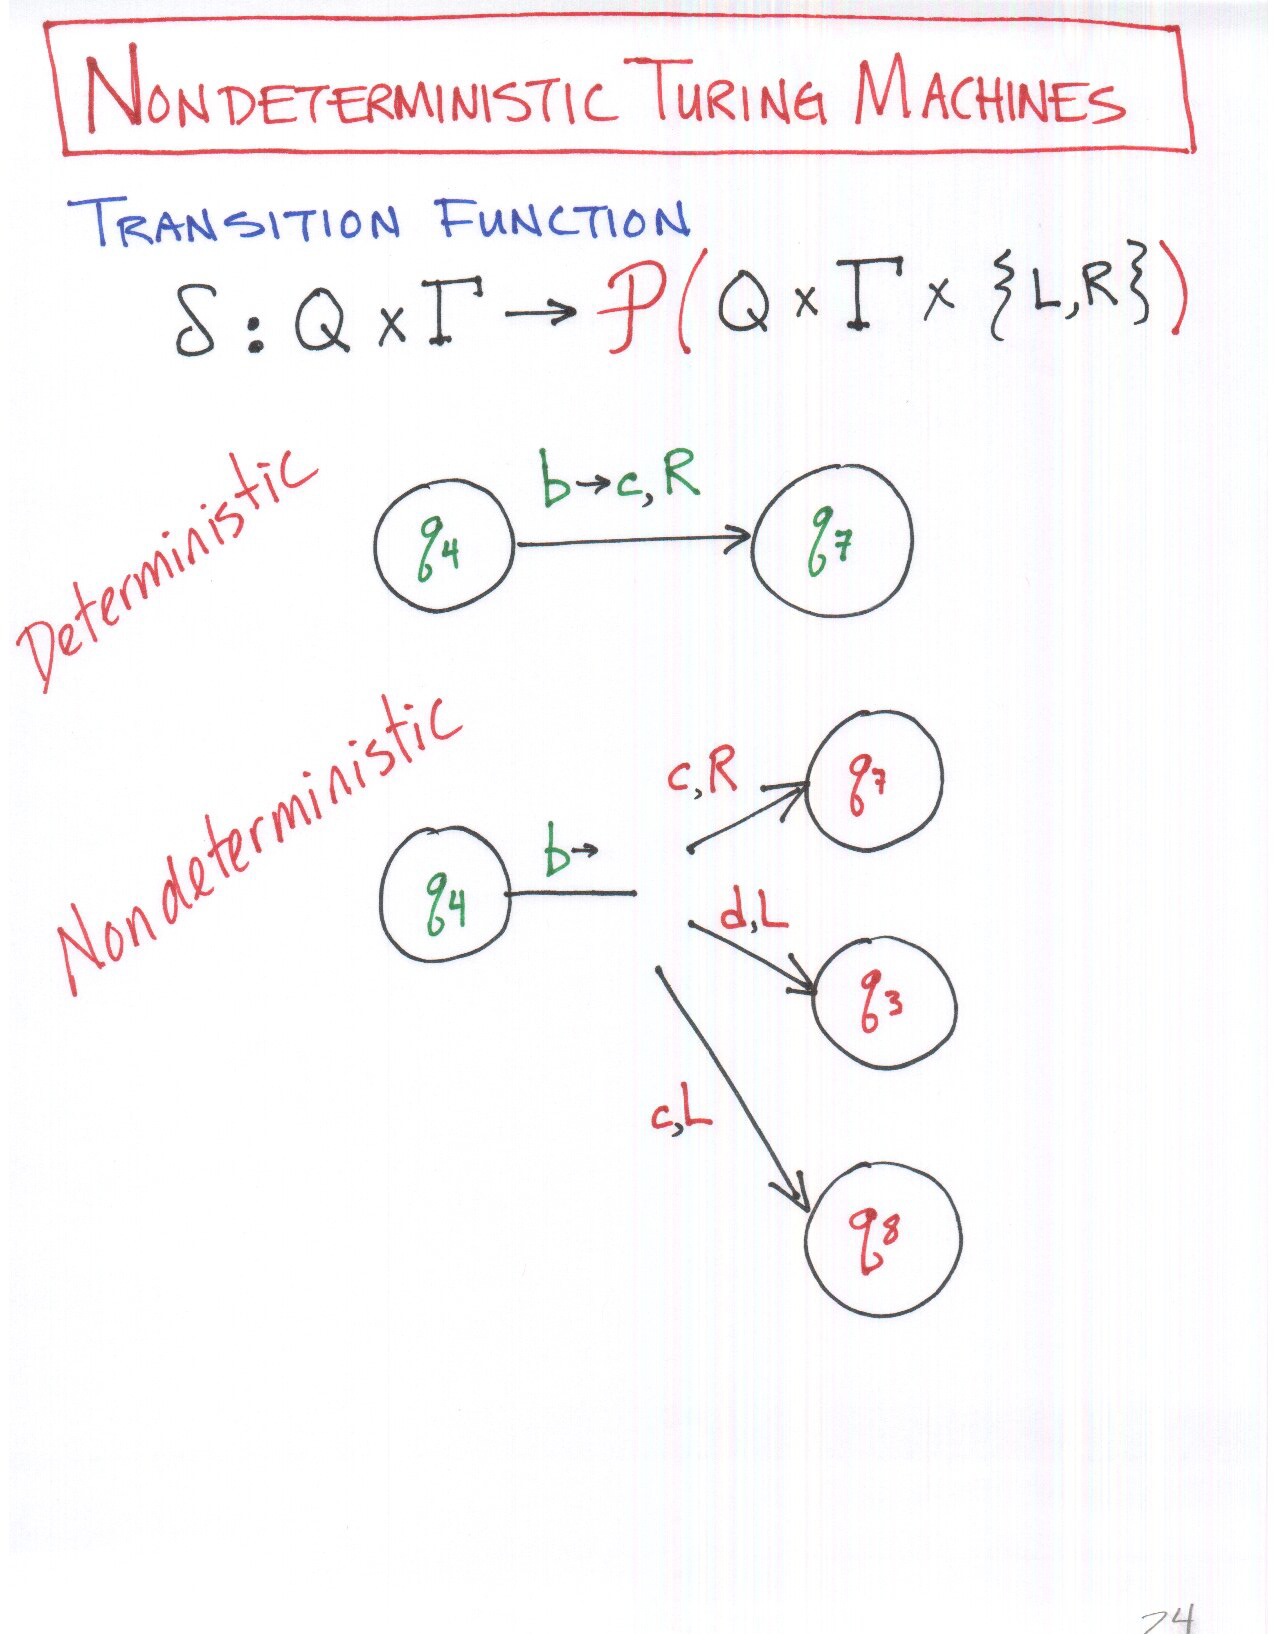 NONDETERMINISTIC TURING MACHINES
TRANSITION FUNCTION
δ: Q × Γ → P( Q × Γ × {L,R})
Deterministic
b→c,R
q4
q7
Nondeterministic
c,R
q7
b→
q4
d,L
q3
c,L
q8
24